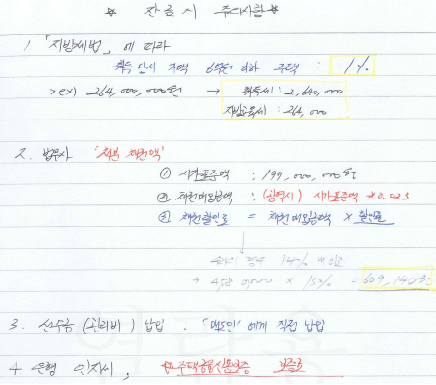 * 잔금시 주의사항 *
1. 「지방세법」에 따라
취득 당시 가액 6억원 이하 주택 : 1%
>ex) 264,000,000원 → 취득세 : 2,640,000
지방교육세 : 264,000
2. 법무사 '채권'
① 시가표준액 : 199,000,000원
② 채권매입금액 : (광역시) 시가표준액 * 0.023
③ 채권할인료 = 채권매입금액 × 할인율
14%
→ × 15% = 609,140원
3. 선수금 (관리비) 납입. '매도인'에게 직접 납입
4. 은행 인지세, 주택금융신용보증 보증료